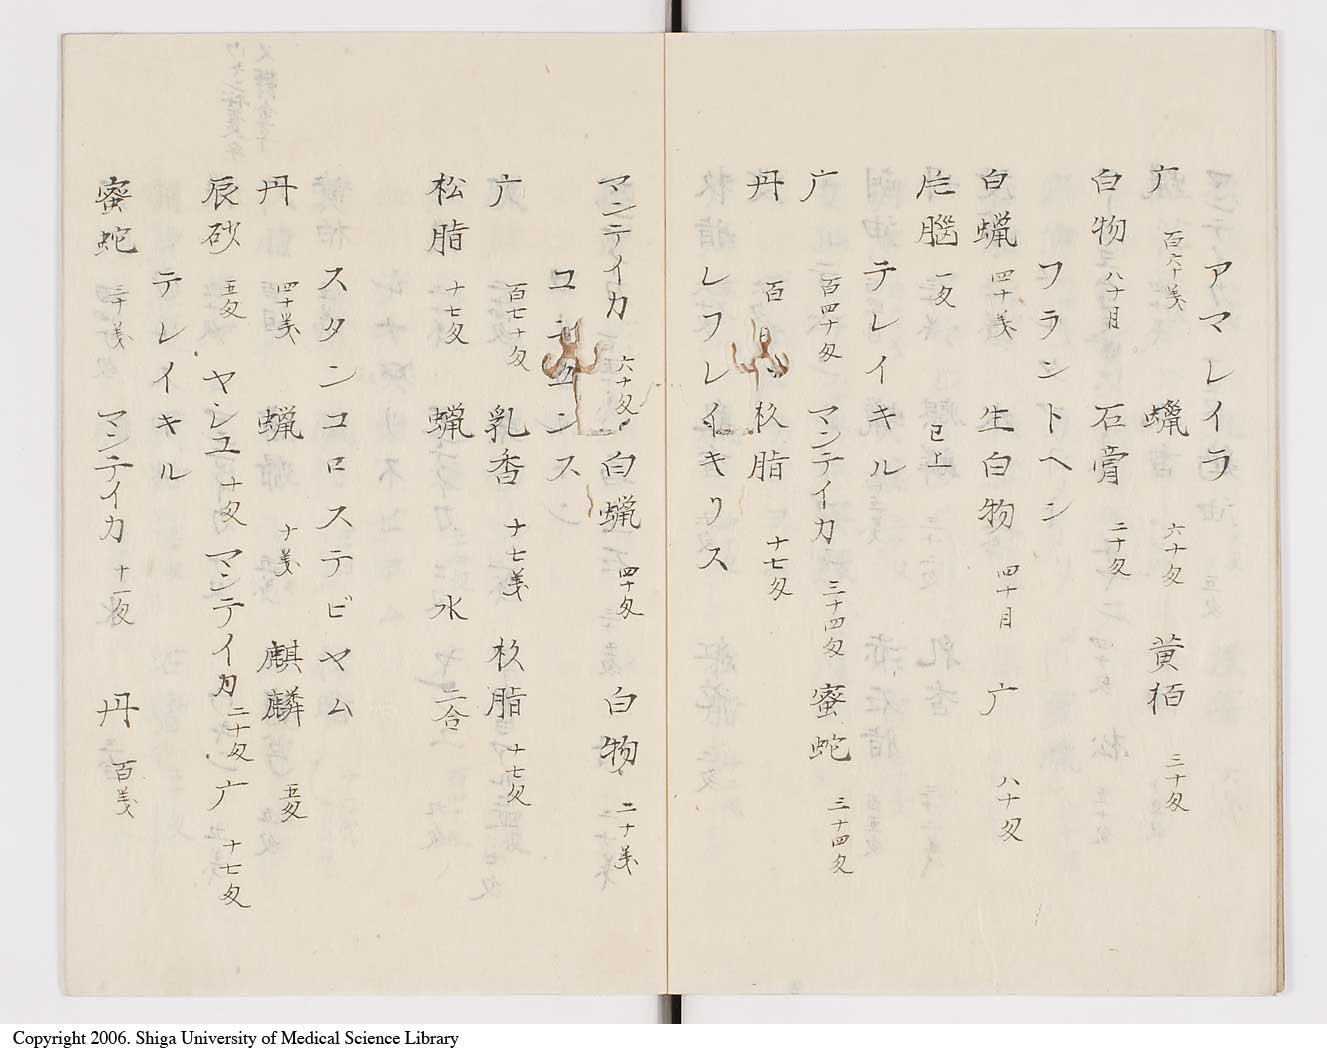 アマレイラ
广 百六十美 蝋 六十匁 黄栢 三十匁
白物 八十目 石膏 二十匁
フラントヘン
白蝋 四十美 生白物 四十目 广 八十匁
片腦 一匁 已上
テレイキル
广 百四十匁 マンテイカ 三十四匁 蜜蛇 三十四匁
丹 百目 杦脂 十七匁
レフレイキリス
マンテイカ 六十匁 白蝋 四十匁 白物 二十美
コンス
广 百七十匁 乳香 十七美 杦脂 十七匁
松脂 十七匁 蝋 水 二合
スタンコロステビヤム
丹 四十美 蝋 十美 麒麟 五匁
辰砂 五匁 ヤシユ 十匁 マンテイカ 二十匁 广 十七匁
テレイキル
蜜蛇 三十美 マンテイカ 十一匁 丹 百美
Copyright 2006. Shiga University of Medical Science Library